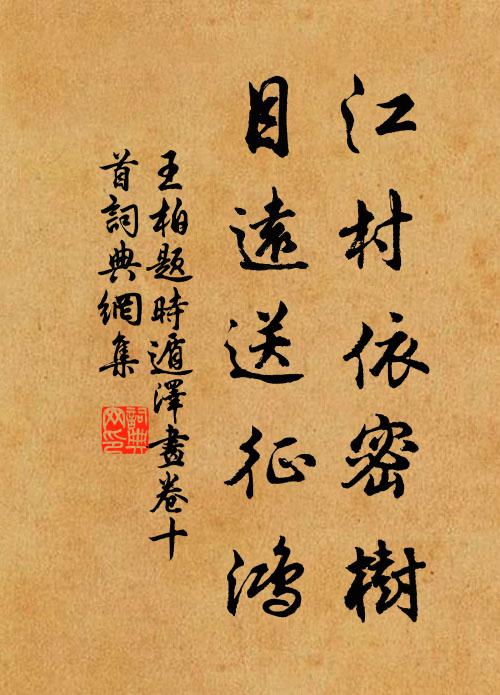 江村依密樹
目遠送征鴻
王柏題時遁澤畫卷十
首詞典網集
詞典
网印